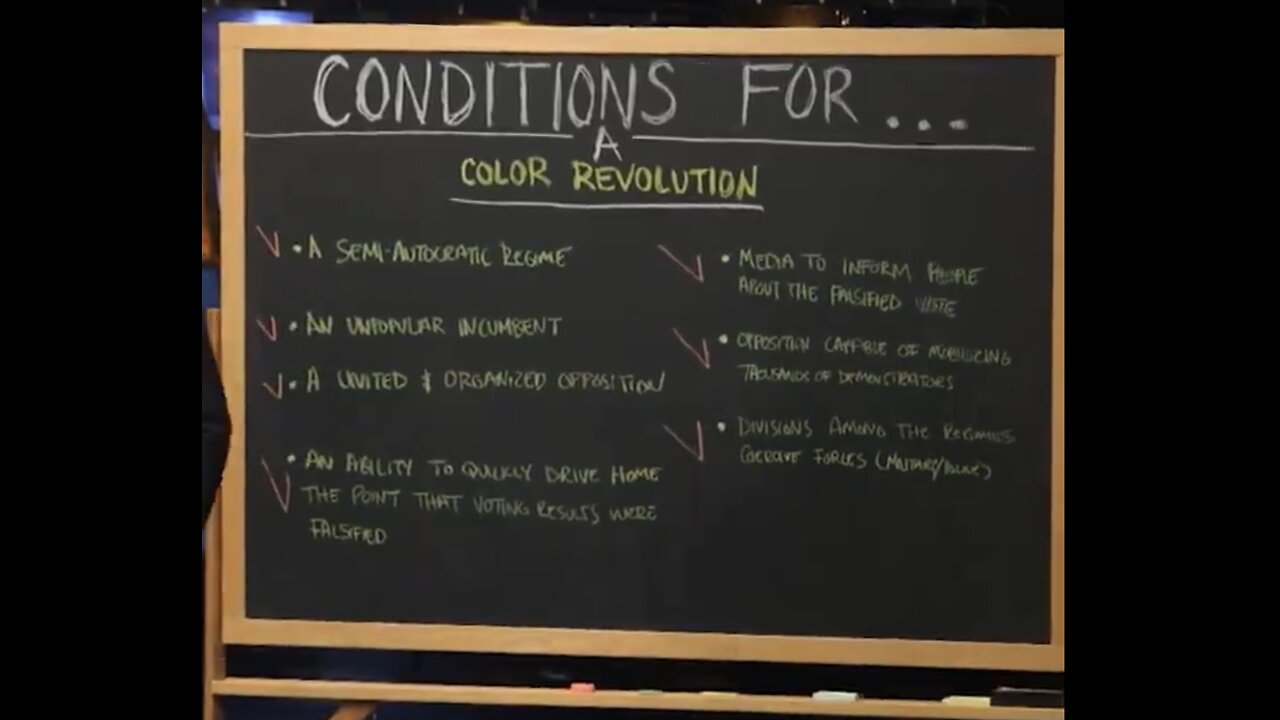 CONDITIONS FOR...
A
COLOR REVOLUTION
• A SEMI-AUTOCRATIC REGIME
• AN UNPOPULAR INCUMBENT
• A UNITED & ORGANIZED OPPOSITION
• AN ABILITY TO QUICKLY DRIVE HOME
THE POINT THAT VOTING RESULTS WERE
FALSIFIED
• MEDIA TO INFORM PEOPLE
ABOUT THE FALSIFIED VOTE
• OPPOSITION CAPABLE OF MOBILIZING
THOUSANDS OF DEMONSTRATORS
• DIVISIONS AMONG THE REGIMES
COERCIVE FORCES (MILITARY/POLICE)